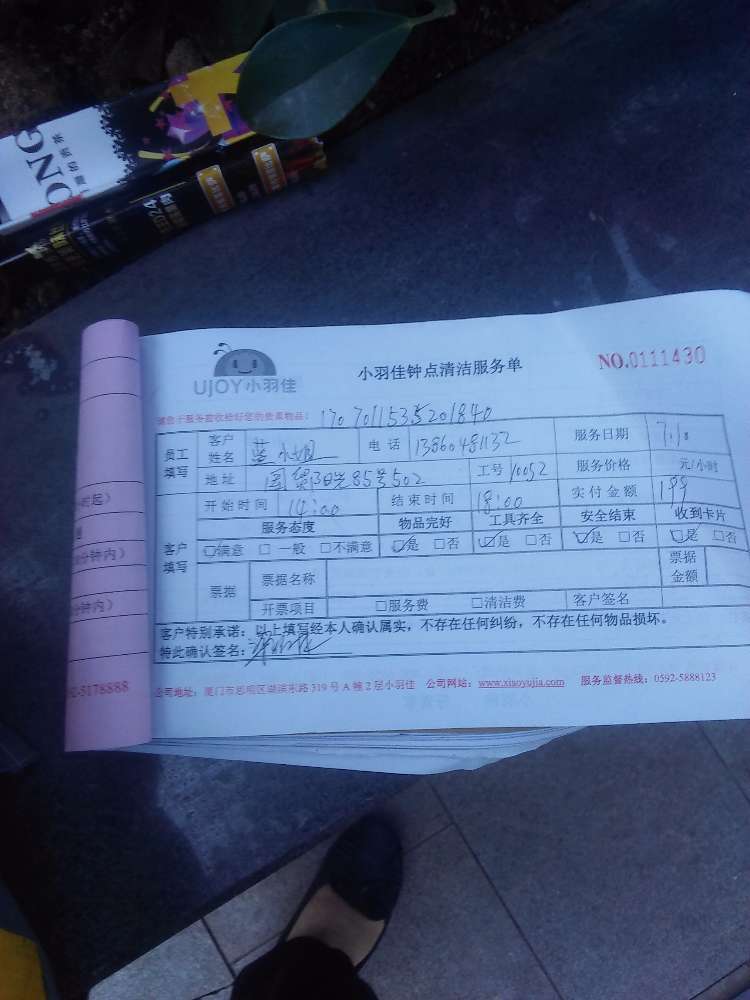 ONG
UJOY小羽佳
小羽佳钟点清洁服务单
NO.0111430
请您于服务前收检好您的贵重物品：1707011535201840
员工填写 客户姓名 蓝小姐 电话 13860481132 服务日期 7.10
地址 国贸阳光85号502 工号 10052 服务价格 元/小时
开始时间 14:00 结束时间 18:00 实付金额 199
客户填写 服务态度 物品完好 工具齐全 安全结束 收到卡片
☑满意 □一般 □不满意 ☑是 □否 ☑是 □否 ☑是 □否 ☑是 □否
票据 票据名称 票据金额
开票项目 □服务费 □清洁费 客户签名
客户特别承诺：以上填写经本人确认属实，不存在任何纠纷，不存在任何物品损坏。
特此确认签名：
公司地址：厦门市思明区湖滨东路319号A幢2层小羽佳 公司网站：www.xiaoyujia.com 服务监督热线：0592-5888123
分钟内）
分钟内）
92-5178888